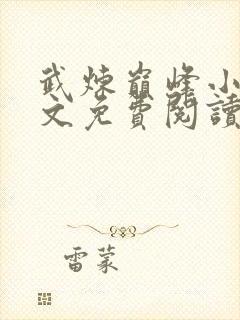 武煉巔峰小
文免費閱讀
雷蒙